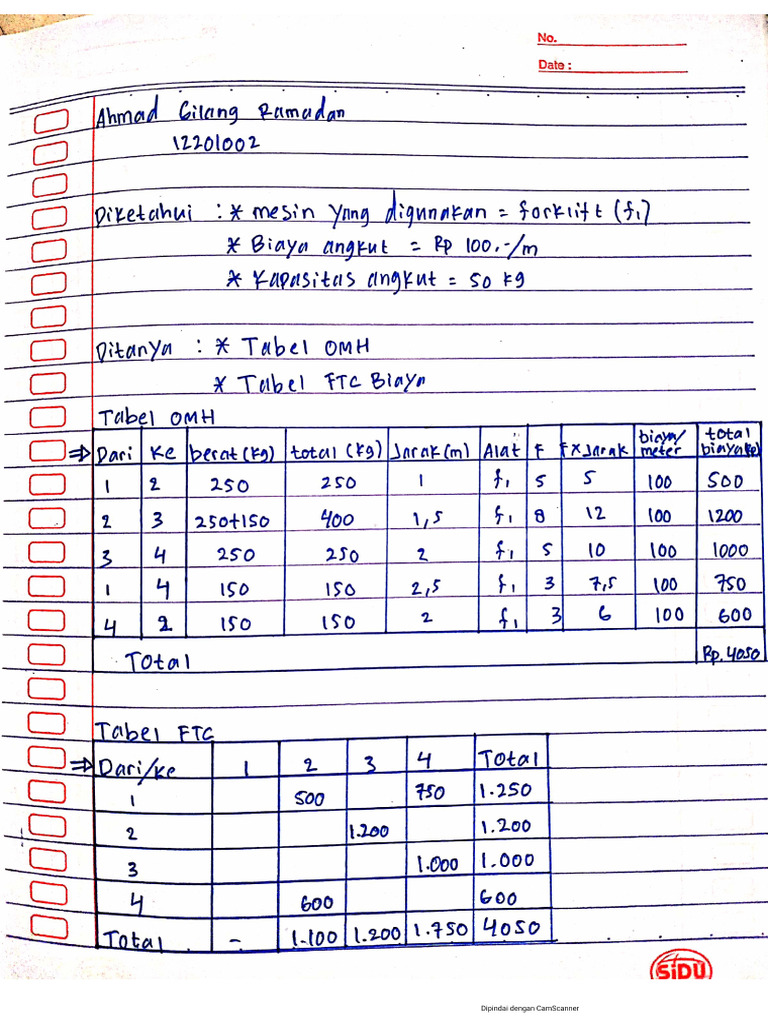 No.
Date :
Ahmad Gilang Ramadan
12201002
Diketahui : * mesin yang digunakan = forklift (f1)
* Biaya angkut = Rp 100.-/m
* Kapasitas angkut = 50 kg
Ditanya : * Tabel OMH
* Tabel FTC Biaya
Tabel OMH
⇒ Dari Ke berat (kg) total (kg) Jarak (m) Alat F F X Jarak biaya/meter total biaya (Rp)
1 2 250 250 1 f1 5 5 100 500
2 3 250+150 400 1,5 f1 8 12 100 1200
3 4 250 250 2 f1 5 10 100 1000
1 4 150 150 2,5 f1 3 7,5 100 750
4 2 150 150 2 f1 3 6 100 600
Total Rp. 4050
Tabel FTC
⇒ Dari/ke 1 2 3 4 Total
1 500 750 1.250
2 1.200 1.200
3 1.000 1.000
4 600 600
Total - 1.100 1.200 1.750 4050
SiDU
Dipindai dengan CamScanner